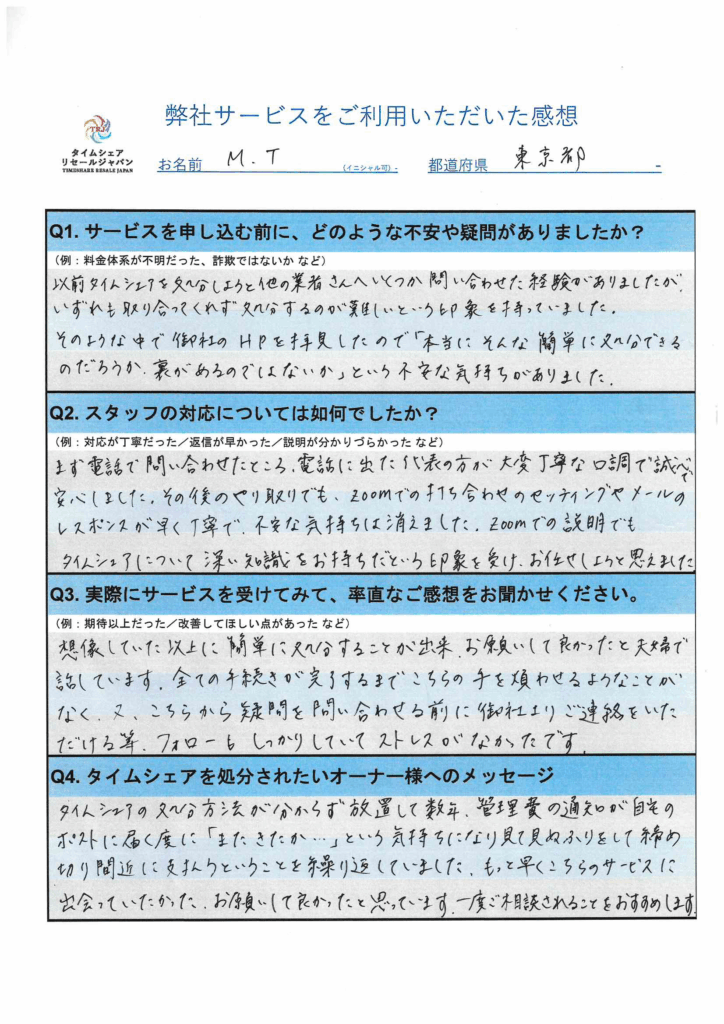 弊社サービスをご利用いただいた感想
TRJ
タイムシェア
リセールジャパン
TIMESHARE RESALE JAPAN
お名前 M.T (イニシャル可) -
都道府県 東京都 -
Q1. サービスを申し込む前に、どのような不安や疑問がありましたか？
（例：料金体系が不明だった、詐欺ではないか など）
以前タイムシェアを処分しようと他の業者さんへいくつか問い合わせた経験がありましたが、
いずれも取り合ってくれず処分するのが難しいという印象を持っていました。
そのような中で御社のHPを拝見したので「本当にそんな簡単に処分できる
のだろうか、裏があるのではないか」という不安な気持ちがありました。
Q2. スタッフの対応については如何でしたか？
（例：対応が丁寧だった／返信が早かった／説明が分かりづらかった など）
まず電話で問い合わせたところ、電話に出た代表の方が大変丁寧な口調で誠実で
安心しました。その後のやり取りでも、zoomでの打ち合わせのセッティングやメールの
レスポンスが早く丁寧で、不安な気持ちは消えました。zoomでの説明でも
タイムシェアについて深い知識をお持ちだという印象を受け、お任せしようと思えました
Q3. 実際にサービスを受けてみて、率直なご感想をお聞かせください。
（例：期待以上だった／改善してほしい点があった など）
想像していた以上に簡単に処分することが出来、お願いして良かったと夫婦で
話しています。全ての手続きが完了するまでこちらの手を煩わせるようなことが
なく、又、こちらから疑問を問い合わせる前に御社よりご連絡をいた
だける等、フォローもしっかりしていてストレスがなかったです。
Q4. タイムシェアを処分されたいオーナー様へのメッセージ
タイムシェアの処分方法が分からず放置して数年、管理費の通知が自宅の
ポストに届く度に「またきたか…」という気持ちになり見て見ぬふりをして締め
切り間近に支払うということを繰り返していました。もっと早くこちらのサービスに
出会っていたかった、お願いして良かったと思っています。一度ご相談されることをおすすめします。